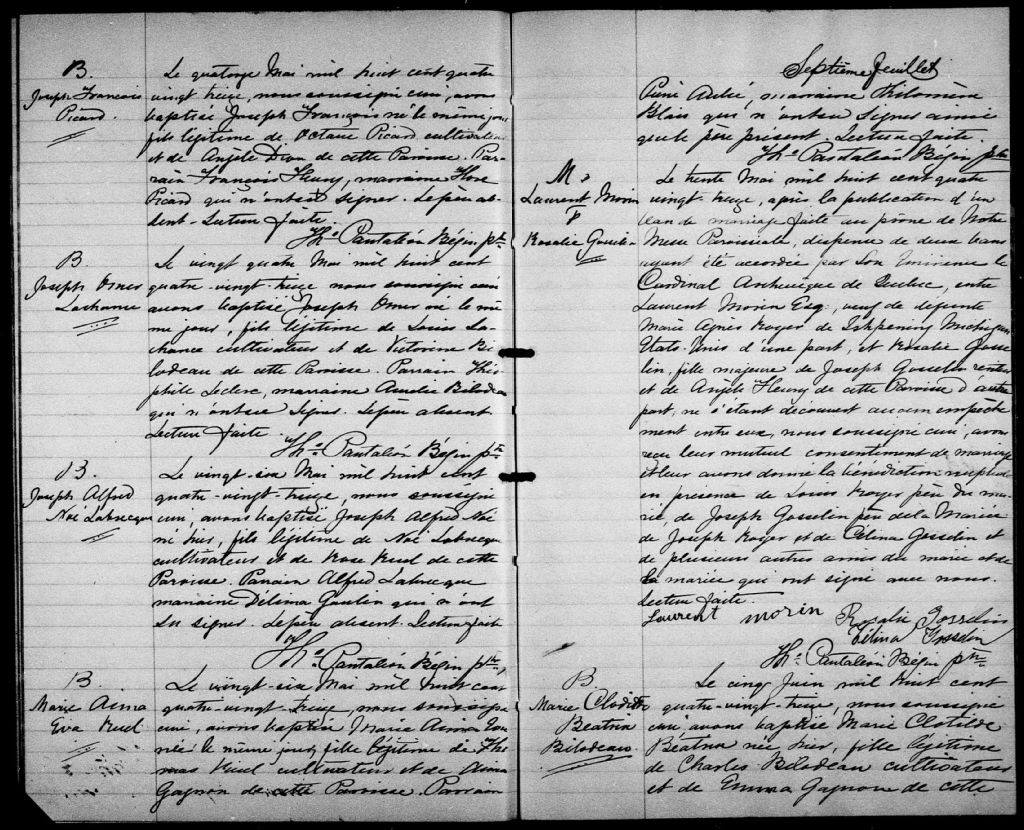 B.
Joseph Francois
Picard.
Le quatorze Mai mil huit cent quatre
vingt treize, nous soussigné curé, avons
baptisé Joseph François né le même jour
fils légitime de Octave Picard cultivateur
et de Angèle Dion de cette Paroisse. Par-
rain Francois Fleury, marraine
Picard qui n'ont su signer. Le père ab-
sent. Lecture faite.
Ths Pantaléon Bégin ptre
B
Joseph Omer
Lachance
Le vingt quatre Mai mil huit cent
quatre-vingt-treize nous soussigné curé
avons baptisé Joseph Omer né le mê-
me jour, fils légitime de Louis La-
chance cultivateur et de Victorine Bi-
lodeau de cette Paroisse. Parrain Théo-
phile Leclerc, marraine Amelie Bilodeau
qui n'ont su signer. Le père absent
Lecture faite.
Ths Pantaléon Bégin ptre
B.
Joseph Alfred
Noé Labrecque
Le vingt-six Mai mil huit cent
quatre-vingt-treize, nous soussigné
curé, avons baptisé Joseph Alfred Noé
né hier, fils légitime de Noé Labrecque
cultivateur et de Rose Ruel de cette
Paroisse. Parrain Alfred Labrecque
marraine Délima Goulin qui n'ont
su signer. Le père absent. Lecture faite
Ths Pantaléon Bégin ptre,
B.
Marie Aima
Eva Ruel
Le vingt-six Mai mil huit cent
quatre-vingt-treize, nous soussigné
curé, avons baptisé Marie Aima Eva
née le même jour, fille légitime de Tho-
mas Ruel cultivateur et de Aima
Gagnon de cette Paroisse. Parrain
Septième feuillet
Pierre Aubé, marraine Philomène
Blais qui n'ont su signer ainsi
que le père présent. Lecture faite.
Ths Pantaléon Bégin ptre
M.
Laurent Morin
&
Rosalie Gosselin
Le trente Mai mil huit cent quatre
vingt-treize, après la publication d'un
ban de mariage faite au prône de Notre
Messe Paroissiale, dispense de deux bans
ayant été accordée par Son Eminence le
Cardinal Archevêque de Québec, entre
Laurent Morin Esq, veuf de defunte
Marie Agnes Royer de Ishpening Michigan
Etats-Unis d'une part, et Rosalie Gosse-
lin, fille majeure de Joseph Gosselin rentier
et de Angèle Fleury de cette Paroisse d'autre
part, ne s'étant découvert aucun empêche-
ment entre eux, nous soussigné curé, avons
reçu leur mutuel consentiment de mariage
et leur avons donné la bénédiction nuptiale
en presence de Louis Royer père du ma-
rié, de Joseph Gosselin père de la Mariée
de Joseph Royer et de Célina Gosselin et
de plusieurs autres amis du marié et de
la mariée qui ont signé avec nous.
Lecture faite.
Laurent morin Rosalie Gosselin
Célina Gosselin
Ths Pantaléon Bégin ptre
B.
Marie Clotilde
Béatrice
Bilodeau
Le cinq Juin mil huit cent
quatre-vingt-treize, nous soussigné
curé avons baptisé Marie Clotilde
Béatrice née hier, fille légitime
de Charles Bilodeau cultivateur
et de Emma Gagnon de cette